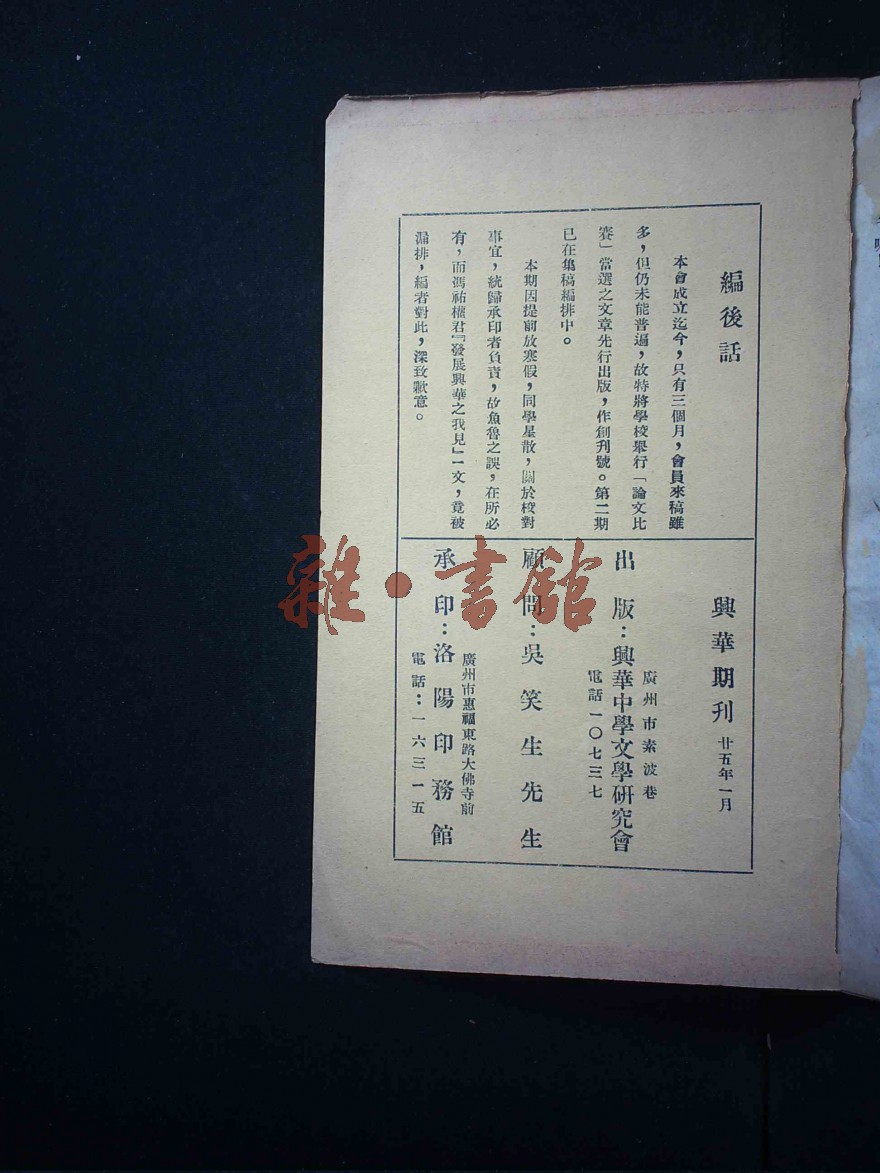 編後話
本會成立迄今，只有三個月，會員來稿雖
多，但仍未能普遍，故特將學校舉行「論文比
賽」當選之文章先行出版，作創刊號。第二期
已在集稿編排中。
本期因提前放寒假，同學星散，關於校對
事宜，統歸承印者負責，故魚魯之誤，在所必
有，而馮祐權君『發展興華之我見』一文，竟被
漏排，編者對此，深致歉意。
興華期刊 廿五年一月
出版：興華中學文學研究會
廣州市素波巷
電話一〇七三七
顧問：吳笑生先生
承印：洛陽印務館
廣州市惠福東路大佛寺前
電話：一六三一五
雜·書館